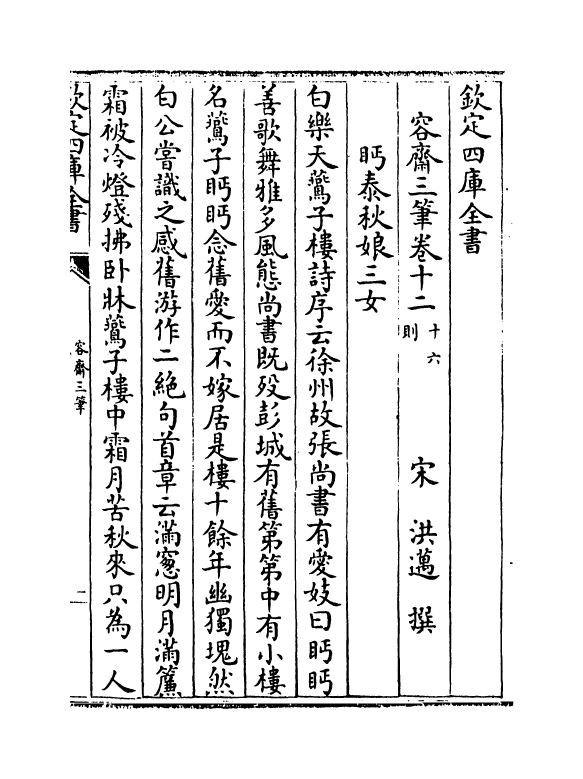 欽定四庫全書
容齋三筆卷十二 十六則 宋 洪邁 撰
眄泰秋娘三女
白樂天鷰子樓詩序云徐州故張尚書有愛妓曰眄眄
善歌舞雅多風態尚書既歿彭城有舊第第中有小樓
名鷰子眄眄念舊愛而不嫁居是樓十餘年幽獨塊然
白公嘗識之感舊游作二絶句首章云滿窻明月滿簾
霜被冷燈殘拂卧牀鷰子樓中霜月苦秋來只為一人
欽定四庫全書
容齋三筆
二